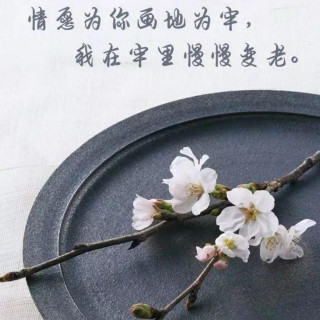 情愿为你画地为牢，
我在牢里慢慢变老。